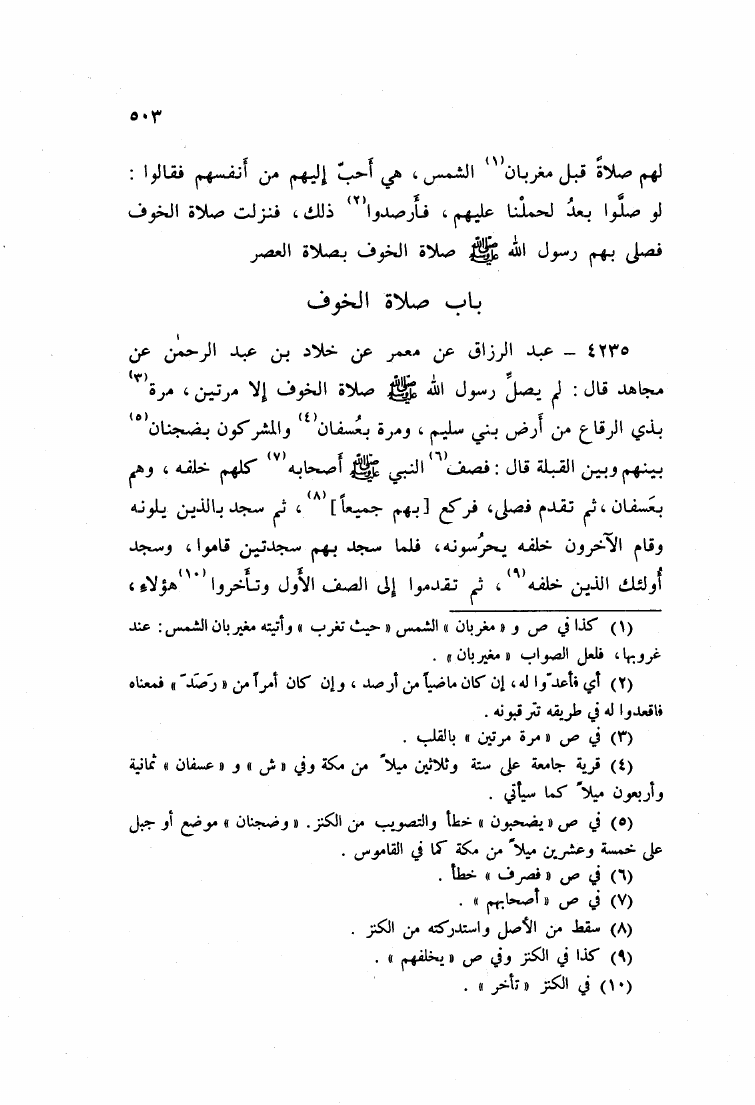 ٥٠٣
لهم صلاةً قبل مغربان(١) الشمس، هي أَحبّ إِليهم من أَنفسهم فقالوا :
لو صلَّوا بعدُ لحملْنا عليهم، فأَرصدوا(٢) ذلك، فنزلت صلاة الخوف
فصلى بهم رسول الله ﷺ صلاة الخوف بصلاة العصر
باب صلاة الخوف
٤٢٣٥ – عبد الرزاق عن معمر عن خلاد بن عبد الرحمٰن عن
مجاهد قال : لم يصلِّ رسول الله ﷺ صلاة الخوف إلا مرتين، مرة(٣)
بذي الرقاع من أَرض بني سليم، ومرة بعُسفان(٤) والمشركون بضجنان(٥)
بينهم وبين القبلة قال : فصف(٦) النبي ﷺ أصحابه(٧) كلهم خلفه، وهم
بعَسفان، ثم تقدم فصلى، فركع [بهم جميعاً](٨)، ثم سجد بالذين يلونه
وقام الآخرون خلفه يحرُسونه، فلما سجد بهم سجدتين قاموا، وسجد
أُولئك الذين خلفه(٩)، ثم تقدموا إلى الصف الأَول وتأَخروا(١٠) هؤلاءِ،
(١) كذا في ص و « مغربان » الشمس « حيث تغرب » وأتيته مغيربان الشمس : عند
غروبها، فلعل الصواب « مغيربان » .
(٢) أي فأعدّوا له، إن كان ماضياً من أرصد، وإن كان أمراً من « رَصَدَ » فمعناه
فاقعدوا له في طريقه تترقبونه .
(٣) في ص « مرة مرتين » بالقلب .
(٤) قرية جامعة على ستة وثلاثين ميلاً من مكة وفي « ش » و « عسفان » ثمانية
وأربعون ميلاً كما سيأتي .
(٥) في ص « يضحبون » خطأ والتصويب من الكنز. « وضجنان » موضع أو جبل
على خمسة وعشرين ميلاً من مكة كما في القاموس .
(٦) في ص « فصرف » خطأ .
(٧) في ص « أصحابهم » .
(٨) سقط من الأصل واستدركته من الكنز .
(٩) كذا في الكنز وفي ص « يخلفهم » .
(١٠) في الكنز « تأخر » .